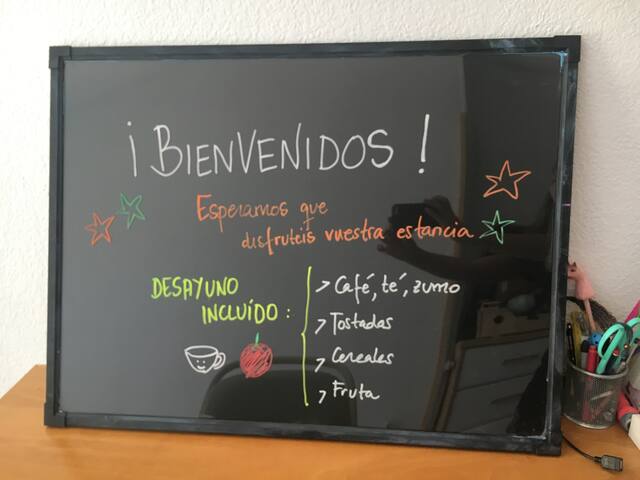 ¡BIENVENIDOS!
Esperamos que
disfruteis vuestra estancia
DESAYUNO
INCLUÍDO:
> Café, té, zumo
> Tostadas
> Cereales
> Fruta